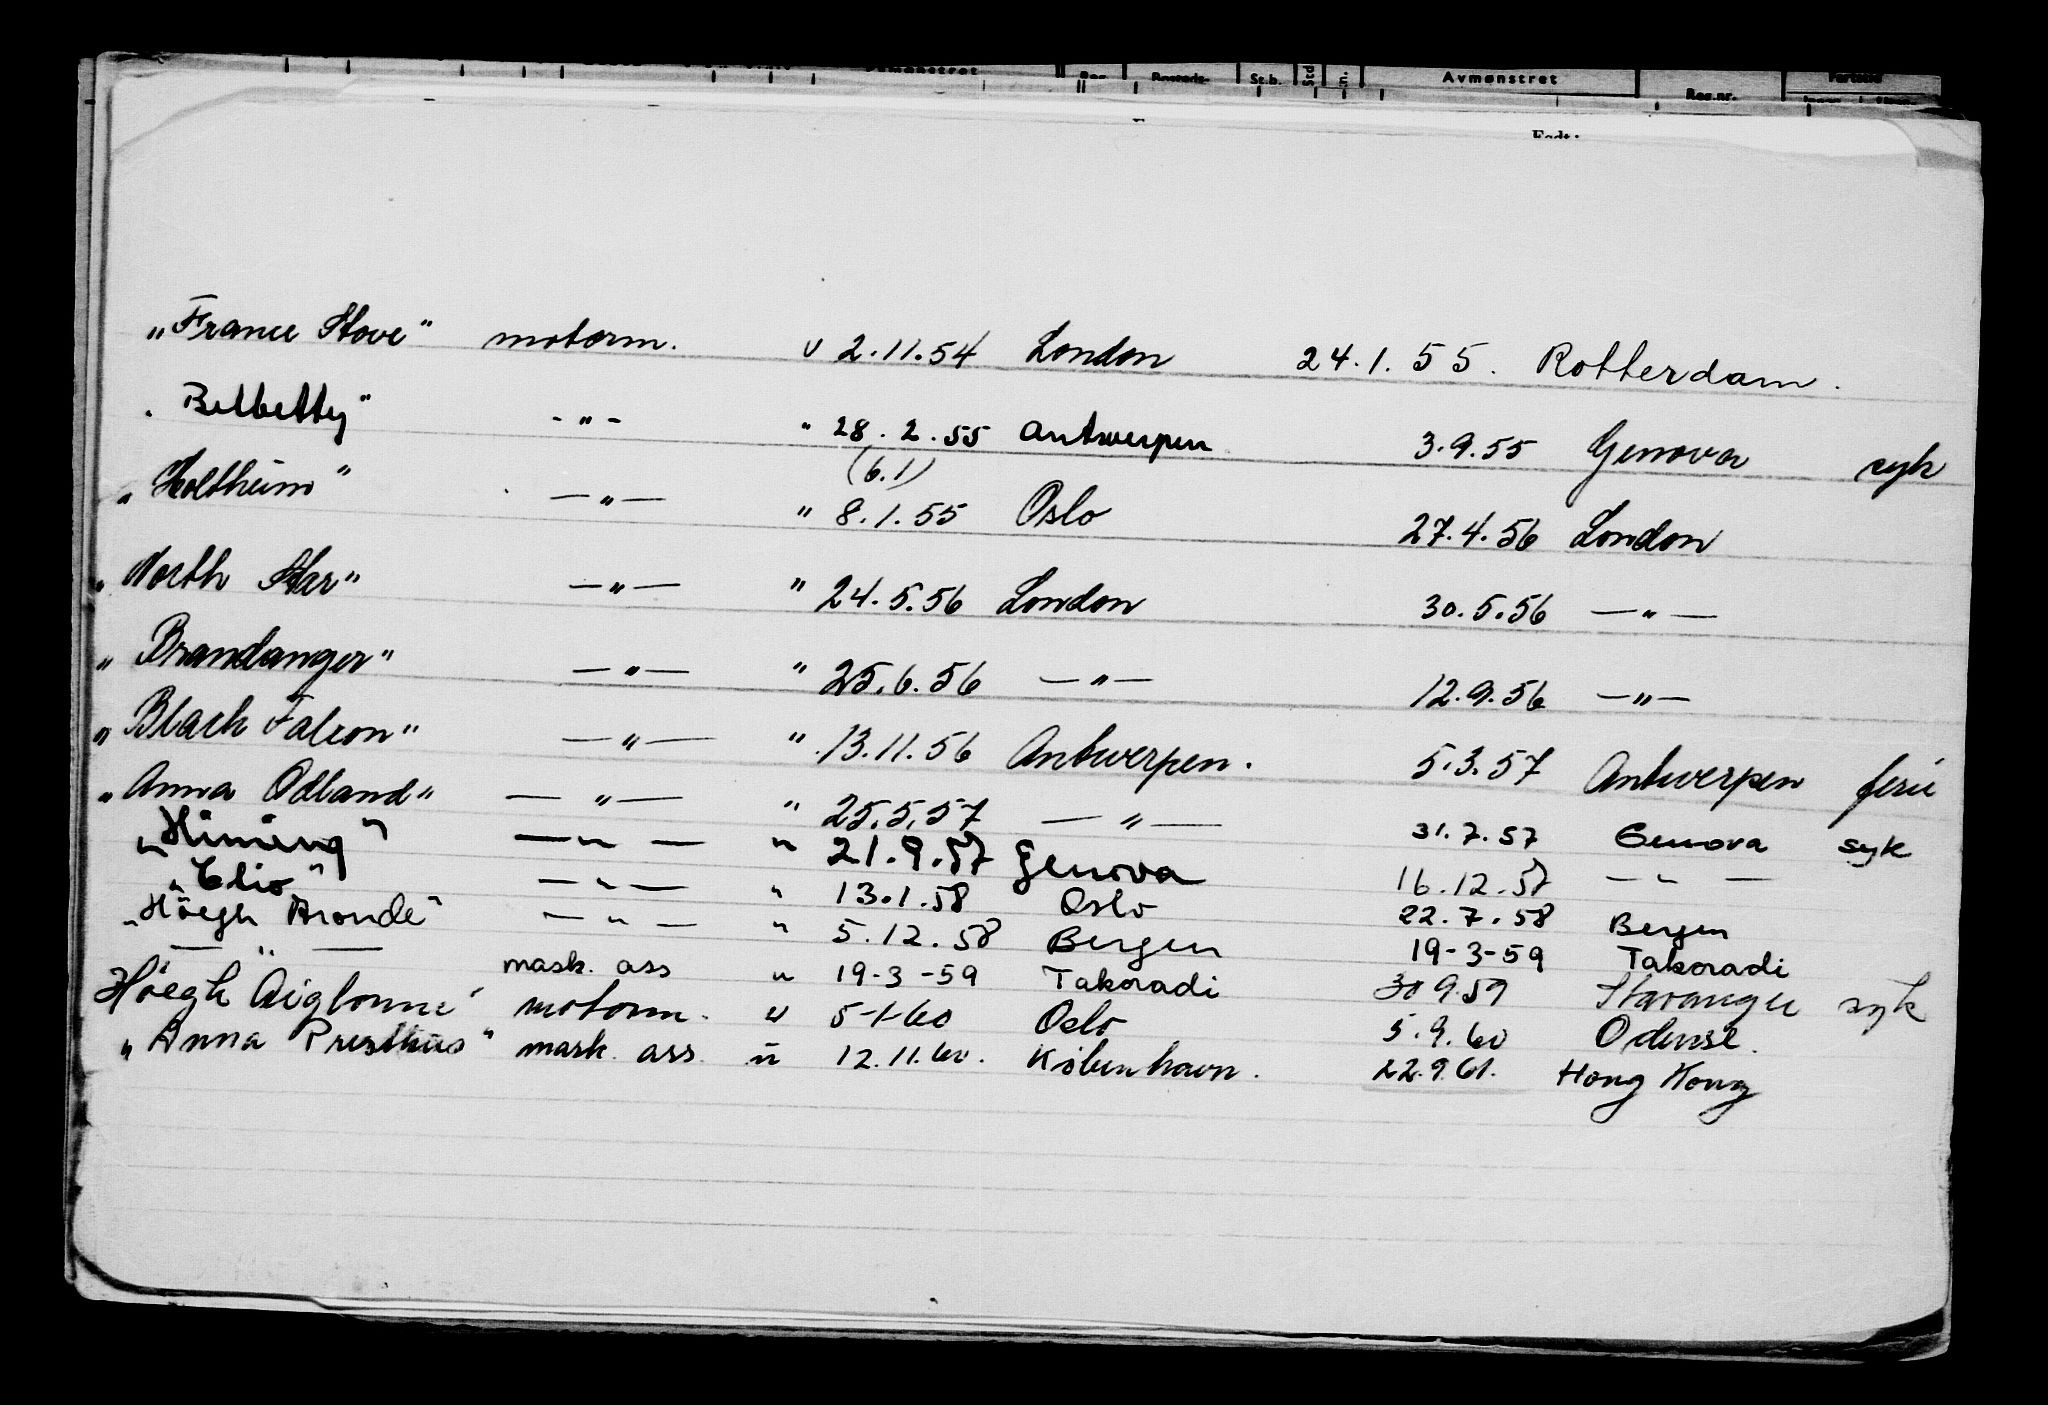 Avmønstret
Reg.nr.
St.b.
"France Stove" motorm. u 2.11.54 London 24.1.55. Rotterdam.
"Belbetty" -"- " 28.2.55 Antwerpen 3.9.55 Genova syk
(6.1)
"Holtheim" -"- " 8.1.55 Oslo 27.4.56 London
"North Star" -"- " 24.5.56 London 30.5.56 -"-
"Brandanger" -"- " 25.6.56 -"- 12.9.56 -"-
"Black Falcon" -"- " 13.11.56 Antwerpen. 5.3.57 Antwerpen ferie
"Anna Odland" -"- " 25.5.57 -"- 31.7.57 Genova syk
"Himing" -"- " 21.9.57 Genova 16.12.57 -"-
"Clio" -"- " 13.1.58 Oslo 22.7.58 Bergen
"Höegh Aronde" -"- " 5.12.58 Bergen 19-3-59 Takoradi
-"- mask. ass " 19-3-59 Takoradi 30 9.59 Stavanger syk
Höegh Aiglonne" motorm. u 5-1-60 Oslo 5.9.60 Odense.
"Anna Presthus" mask. ass. u 12.11.60. København. 22.9.61. Hong Kong